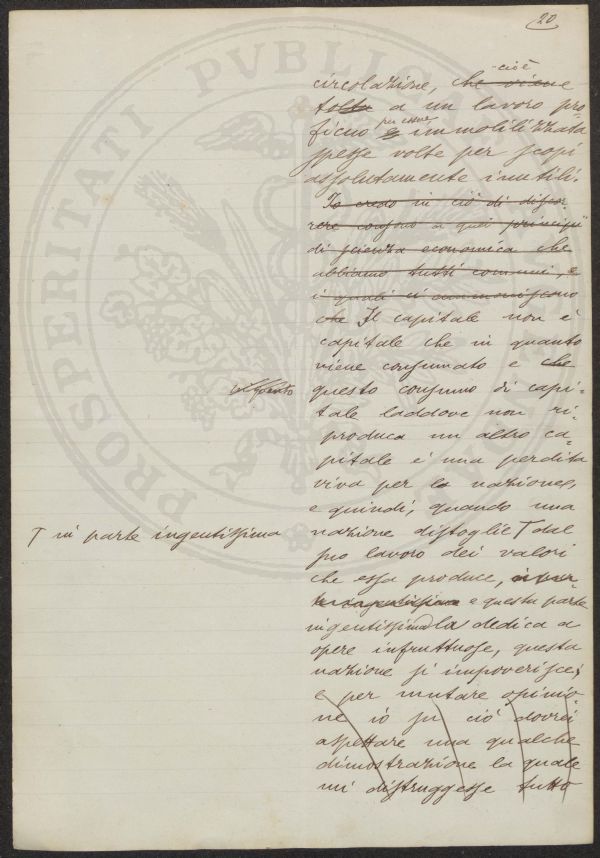 20
PROSPERITATI PVBLICAE
cioè
circolazione, che viene
tolta a un lavoro pro=
per essere
ficuo e immobilizzata
spesse volte per scopi
assolutamente inutili.
Io credo in ciò di discor=
rere consono a quei principii
di scienza economica che
abbiamo tutti comuni, e
i quali ci ammoniscono
che Il capitale non è
capitale che in quanto
viene consumato e che
questo consumo di capi=
tale laddove non ri=
produca un altro ca=
pitale è una perdita
viva per la nazione,
e quindi, quando una
T in parte ingentissima
nazione distoglie T dal
suo lavoro dei valori
che essa produce, in par
te ingentissima e questa parte
ingentissima la dedica a
opere infruttuose, questa
nazione si impoverisce;
e per mutare opinio=
ne io su ciò dovrei
aspettare una qualche
dimostrazione la quale
mi distruggesse tutto